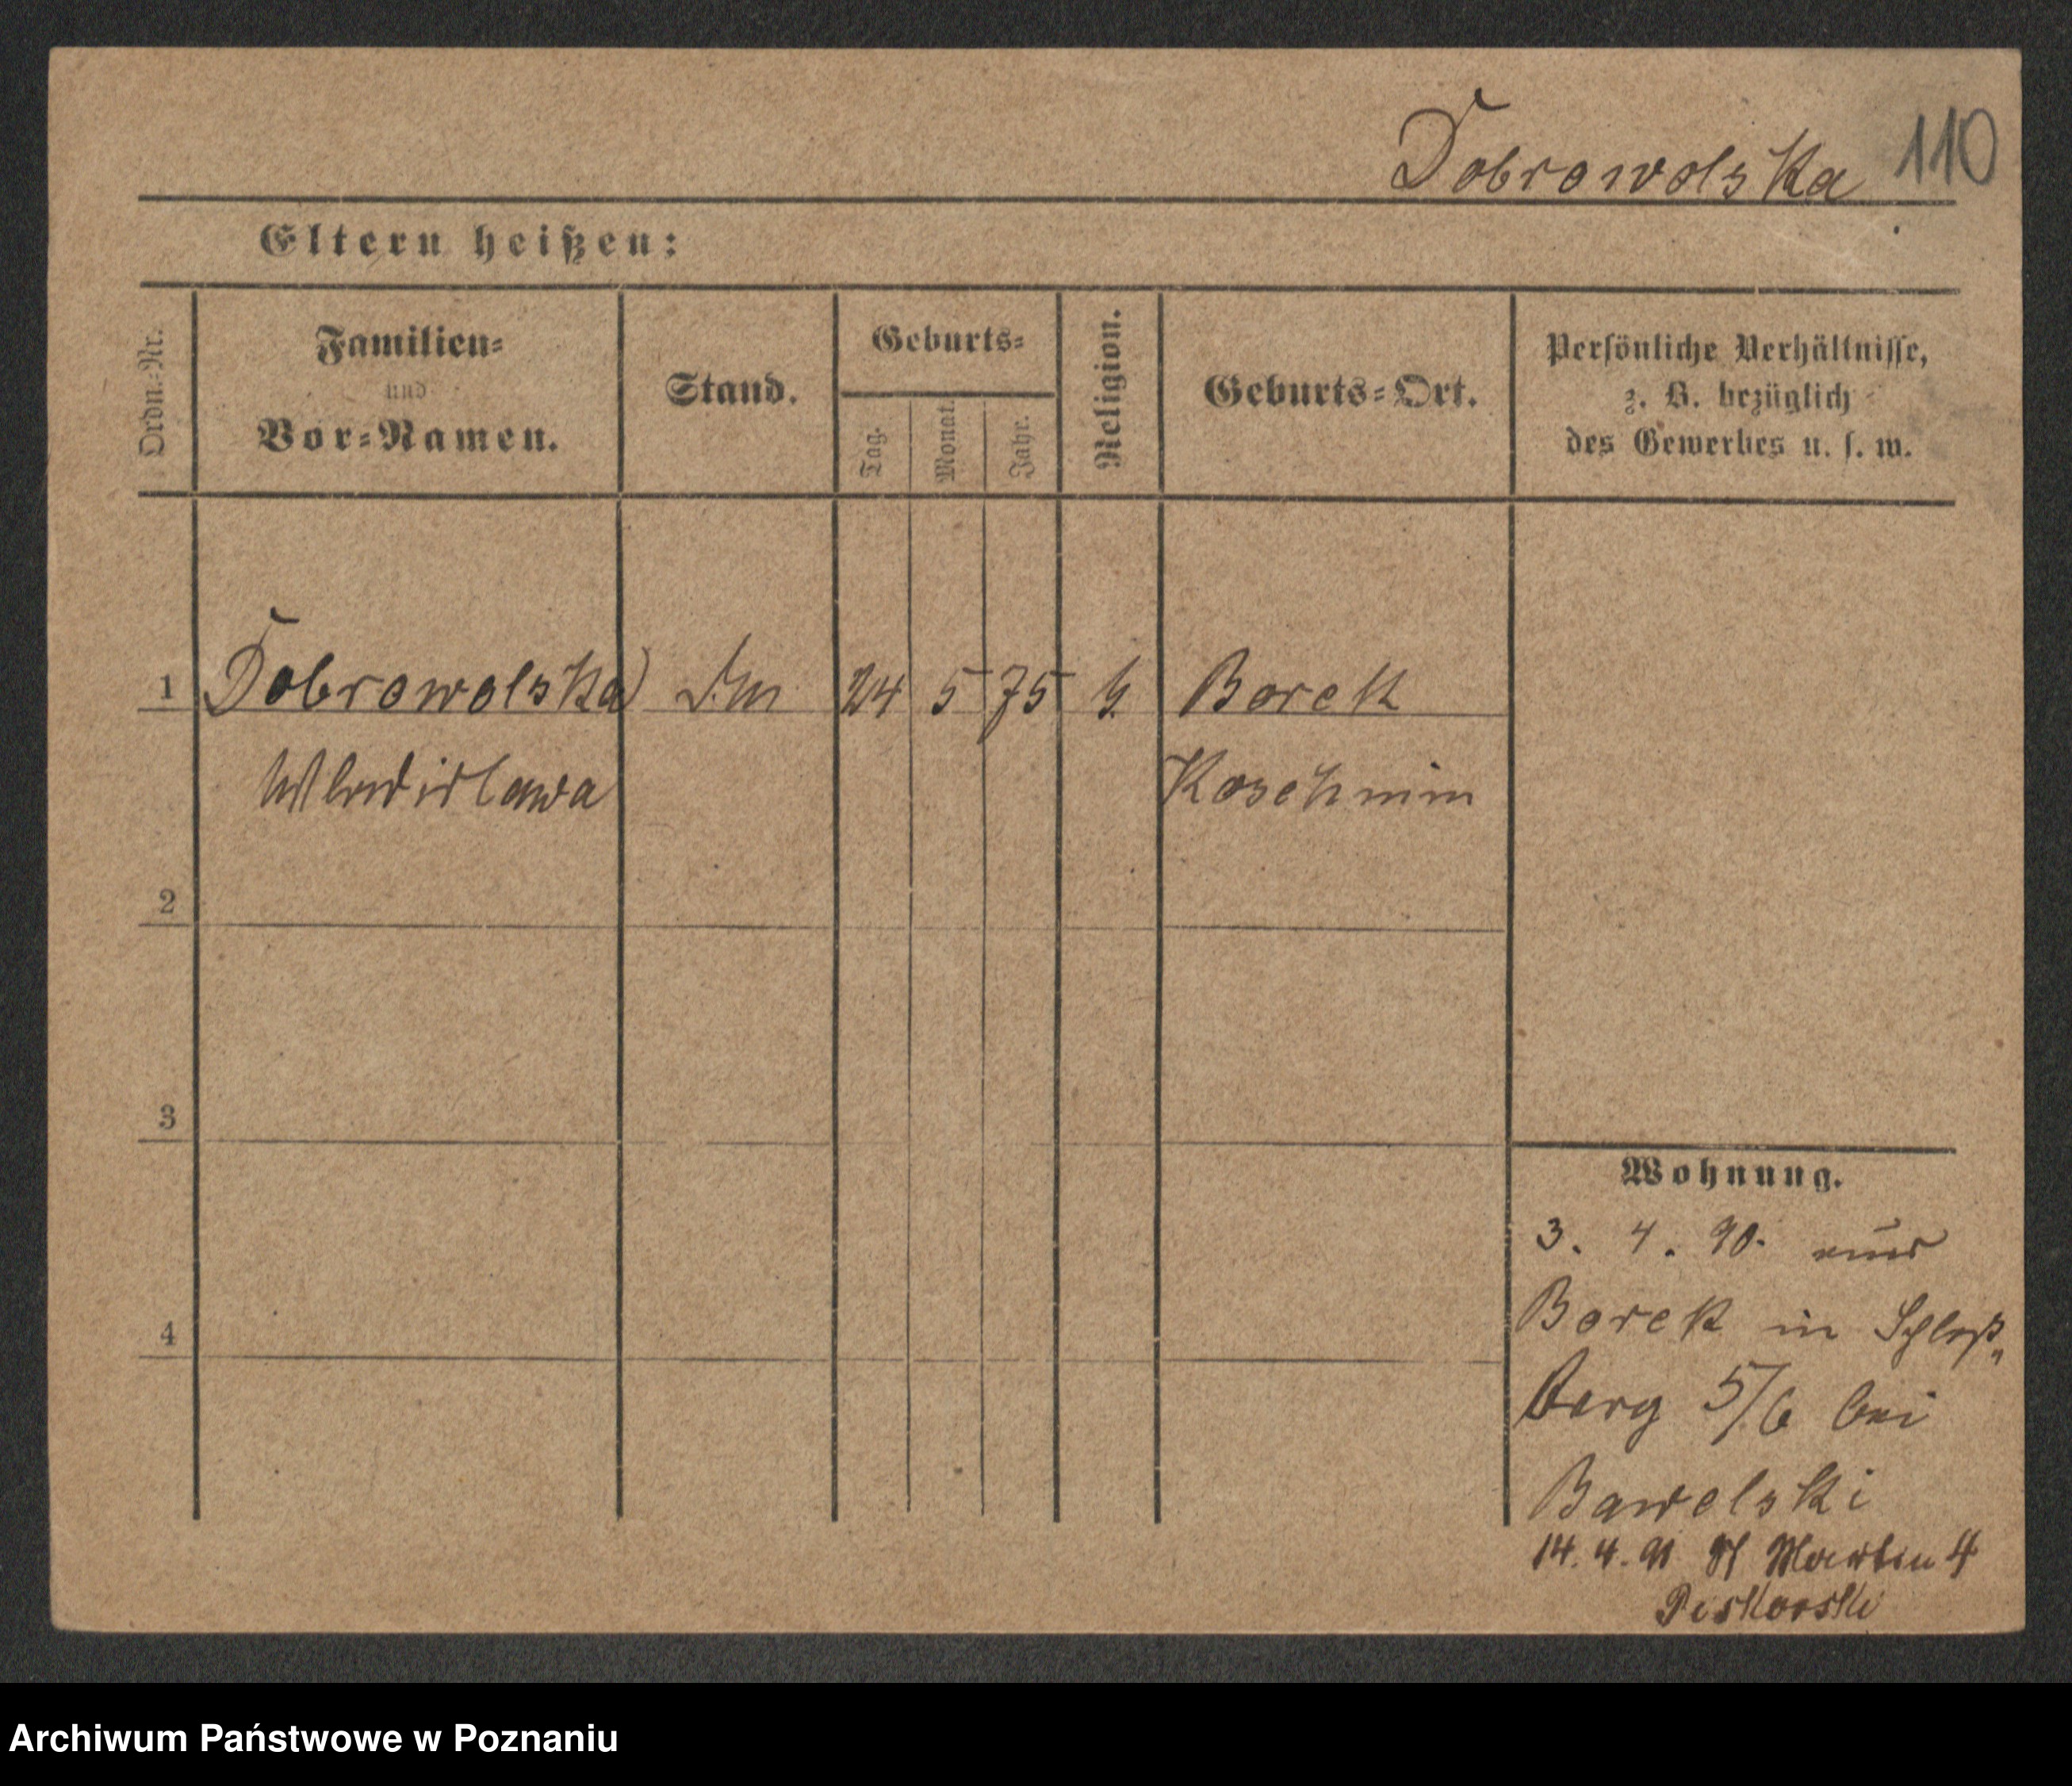 Dobrowolska 110
Eltern heißen:
Ordn.-Nr.
Familien-
und
Vor-Namen.
Stand.
Geburts-
Tag.
Monat.
Jahr.
Religion.
Geburts-Ort.
Persönliche Verhältnisse,
z. B. bezüglich
des Gewerbes u. s. w.
1 Dobrowolska 24 5 75 Borek
Wladislawa Koschmin
2
3
4
Wohnung.
3. 4. 90. aus
Borek in Schloß„
Berg 5/6 bei
Bawelski
14. 4. 91 St Martin 4
Piskorski
Archiwum Państwowe w Poznaniu